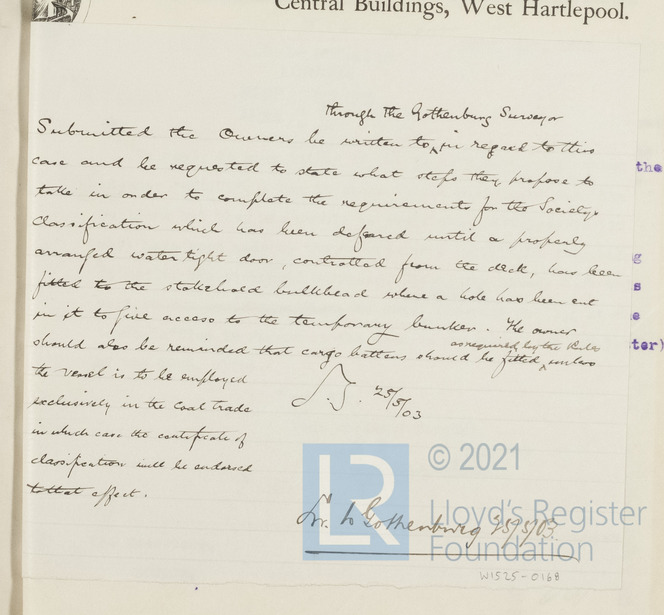 Central Buildings, West Hartlepool.
through the Gothenburg Surveyor
Submitted the Owners be written to ‸ in regard to this
case and be requested to state what steps they propose to
take in order to complete the requirements for the Society's
classification which has been deferred until a properly
arranged watertight door, controlled from the deck, has been
fitted to the stokehold bulkhead where a hole has been cut
in it to give access to the temporary bunker. The owner
as required by the Rules
should also be reminded that cargo battens should be fitted ‸ unless
the vessel is to be employed
exclusively in the Coal trade
in which case the certificate of
classification will be endorsed
to that effect.
25/5/03
Lr. to Gothenburg 25/5/03
W1525-0168
the
g
s
e
ter)
LR
© 2021
Lloyd's Register
Foundation